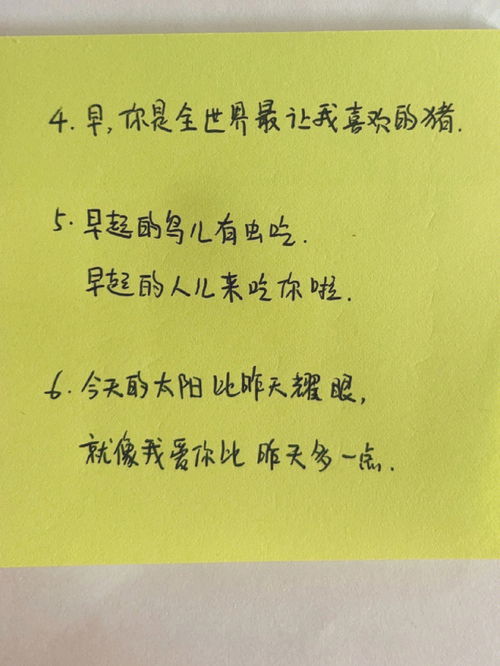 4. 早, 你是全世界最让我喜欢的猪.
5. 早起的鸟儿有虫吃.
早起的人儿来吃你啦.
6. 今天的太阳比昨天耀眼,
就像我爱你比昨天多一点.